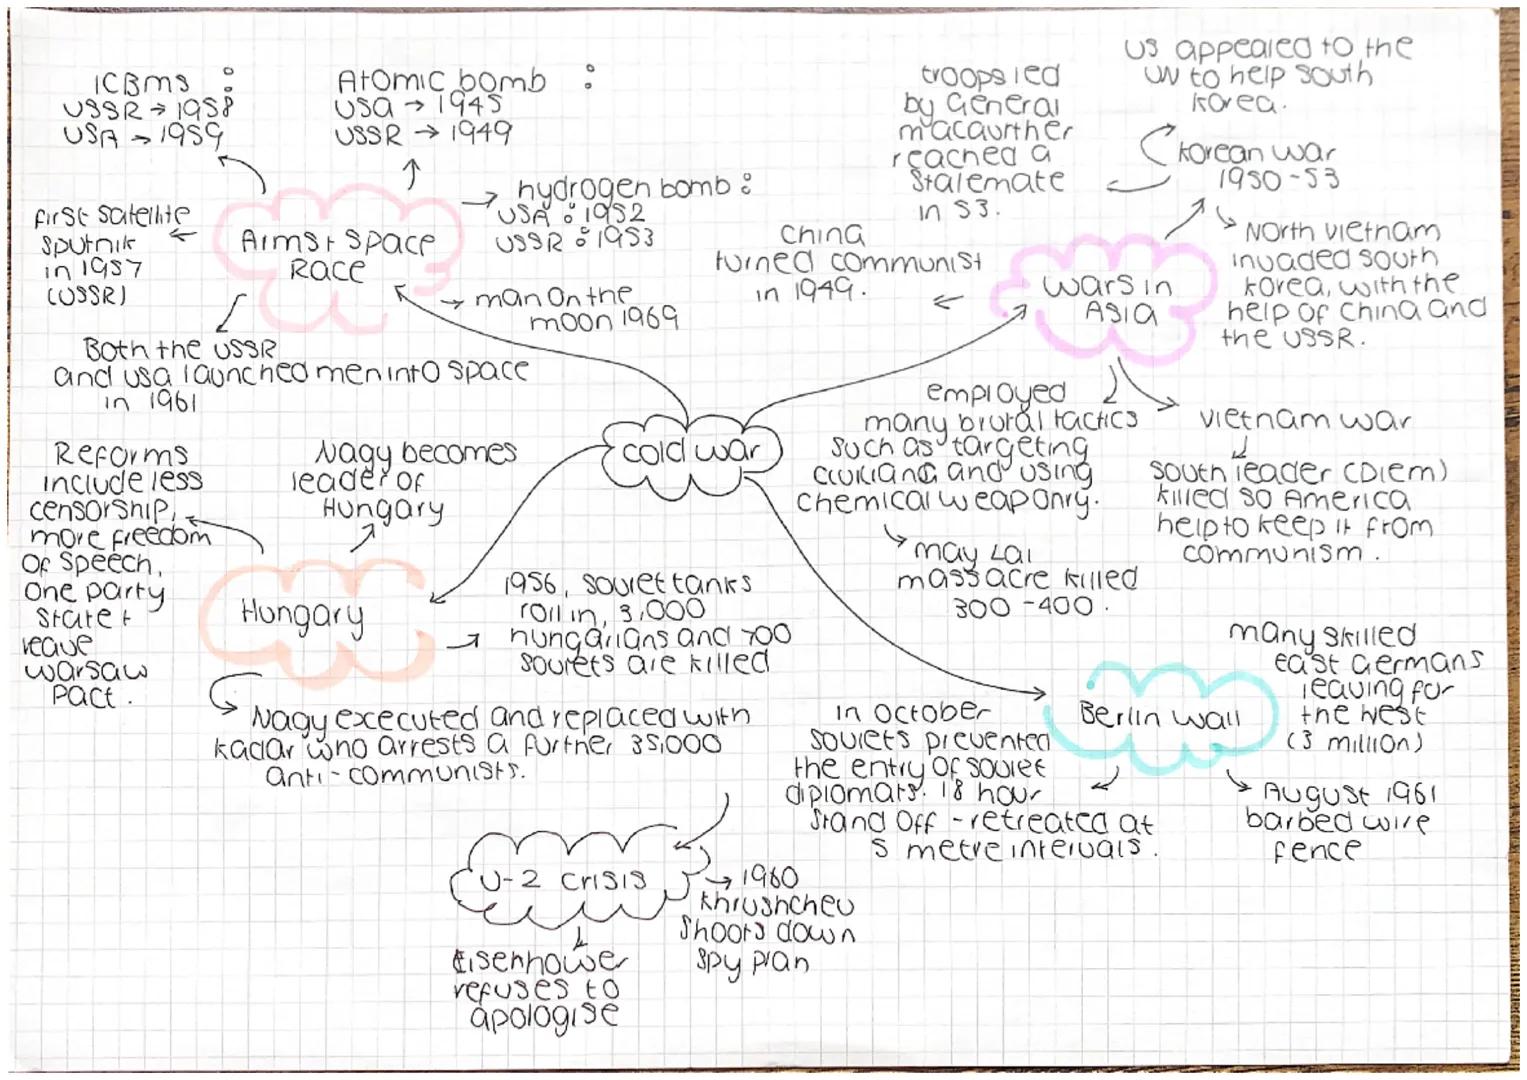 ICBMs :
USSR → 1958
USA → 1959
Atomic bomb :
USA → 1945
USSR → 1949
hydrogen bomb :
USA : 1952
USSR : 1953
first satellite
Sputnik
in 1957
(USSR)
Arms + space
Race
man on the
moon 1969
Both the USSR
and USA launched men into space
in 1961
troops led
by General
macaurther
reached a
Stalemate
in 53.
US appealed to the
UN to help south
Korea.
Korean war
1950-53
China
turned communist
in 1949.
Wars in
Asia
North vietnam
invaded south
Korea, with the
help of China and
the USSR.
employed
many brutal tactics
such as targeting
civilians and using
chemical weaponry.
may Lai
massacre killed
300-400.
Vietnam war
South leader (Diem)
killed so America
help to keep it from
communism.
cold war
Reforms
include less
censorship,
more freedom
of speech,
one party
state +
leave
warsaw
pact.
Nagy becomes
leader of
Hungary
Hungary
1956, soviet tanks
roll in, 3,000
hungarians and 700
soviets are killed
Nagy executed and replaced with
Kadar who arrests a further 35,000
anti-communists.
many skilled
east Germans
leaving for
the west
(3 million)
Berlin wall
in October
soviets prevented
the entry of soviet
diplomats. 18 hour
stand off - retreated at
5 metre intervals.
August 1961
barbed wire
fence
U-2 crisis
1960
Khrushchev
shoots down
spy plan
Eisenhower
refuses to
apologise